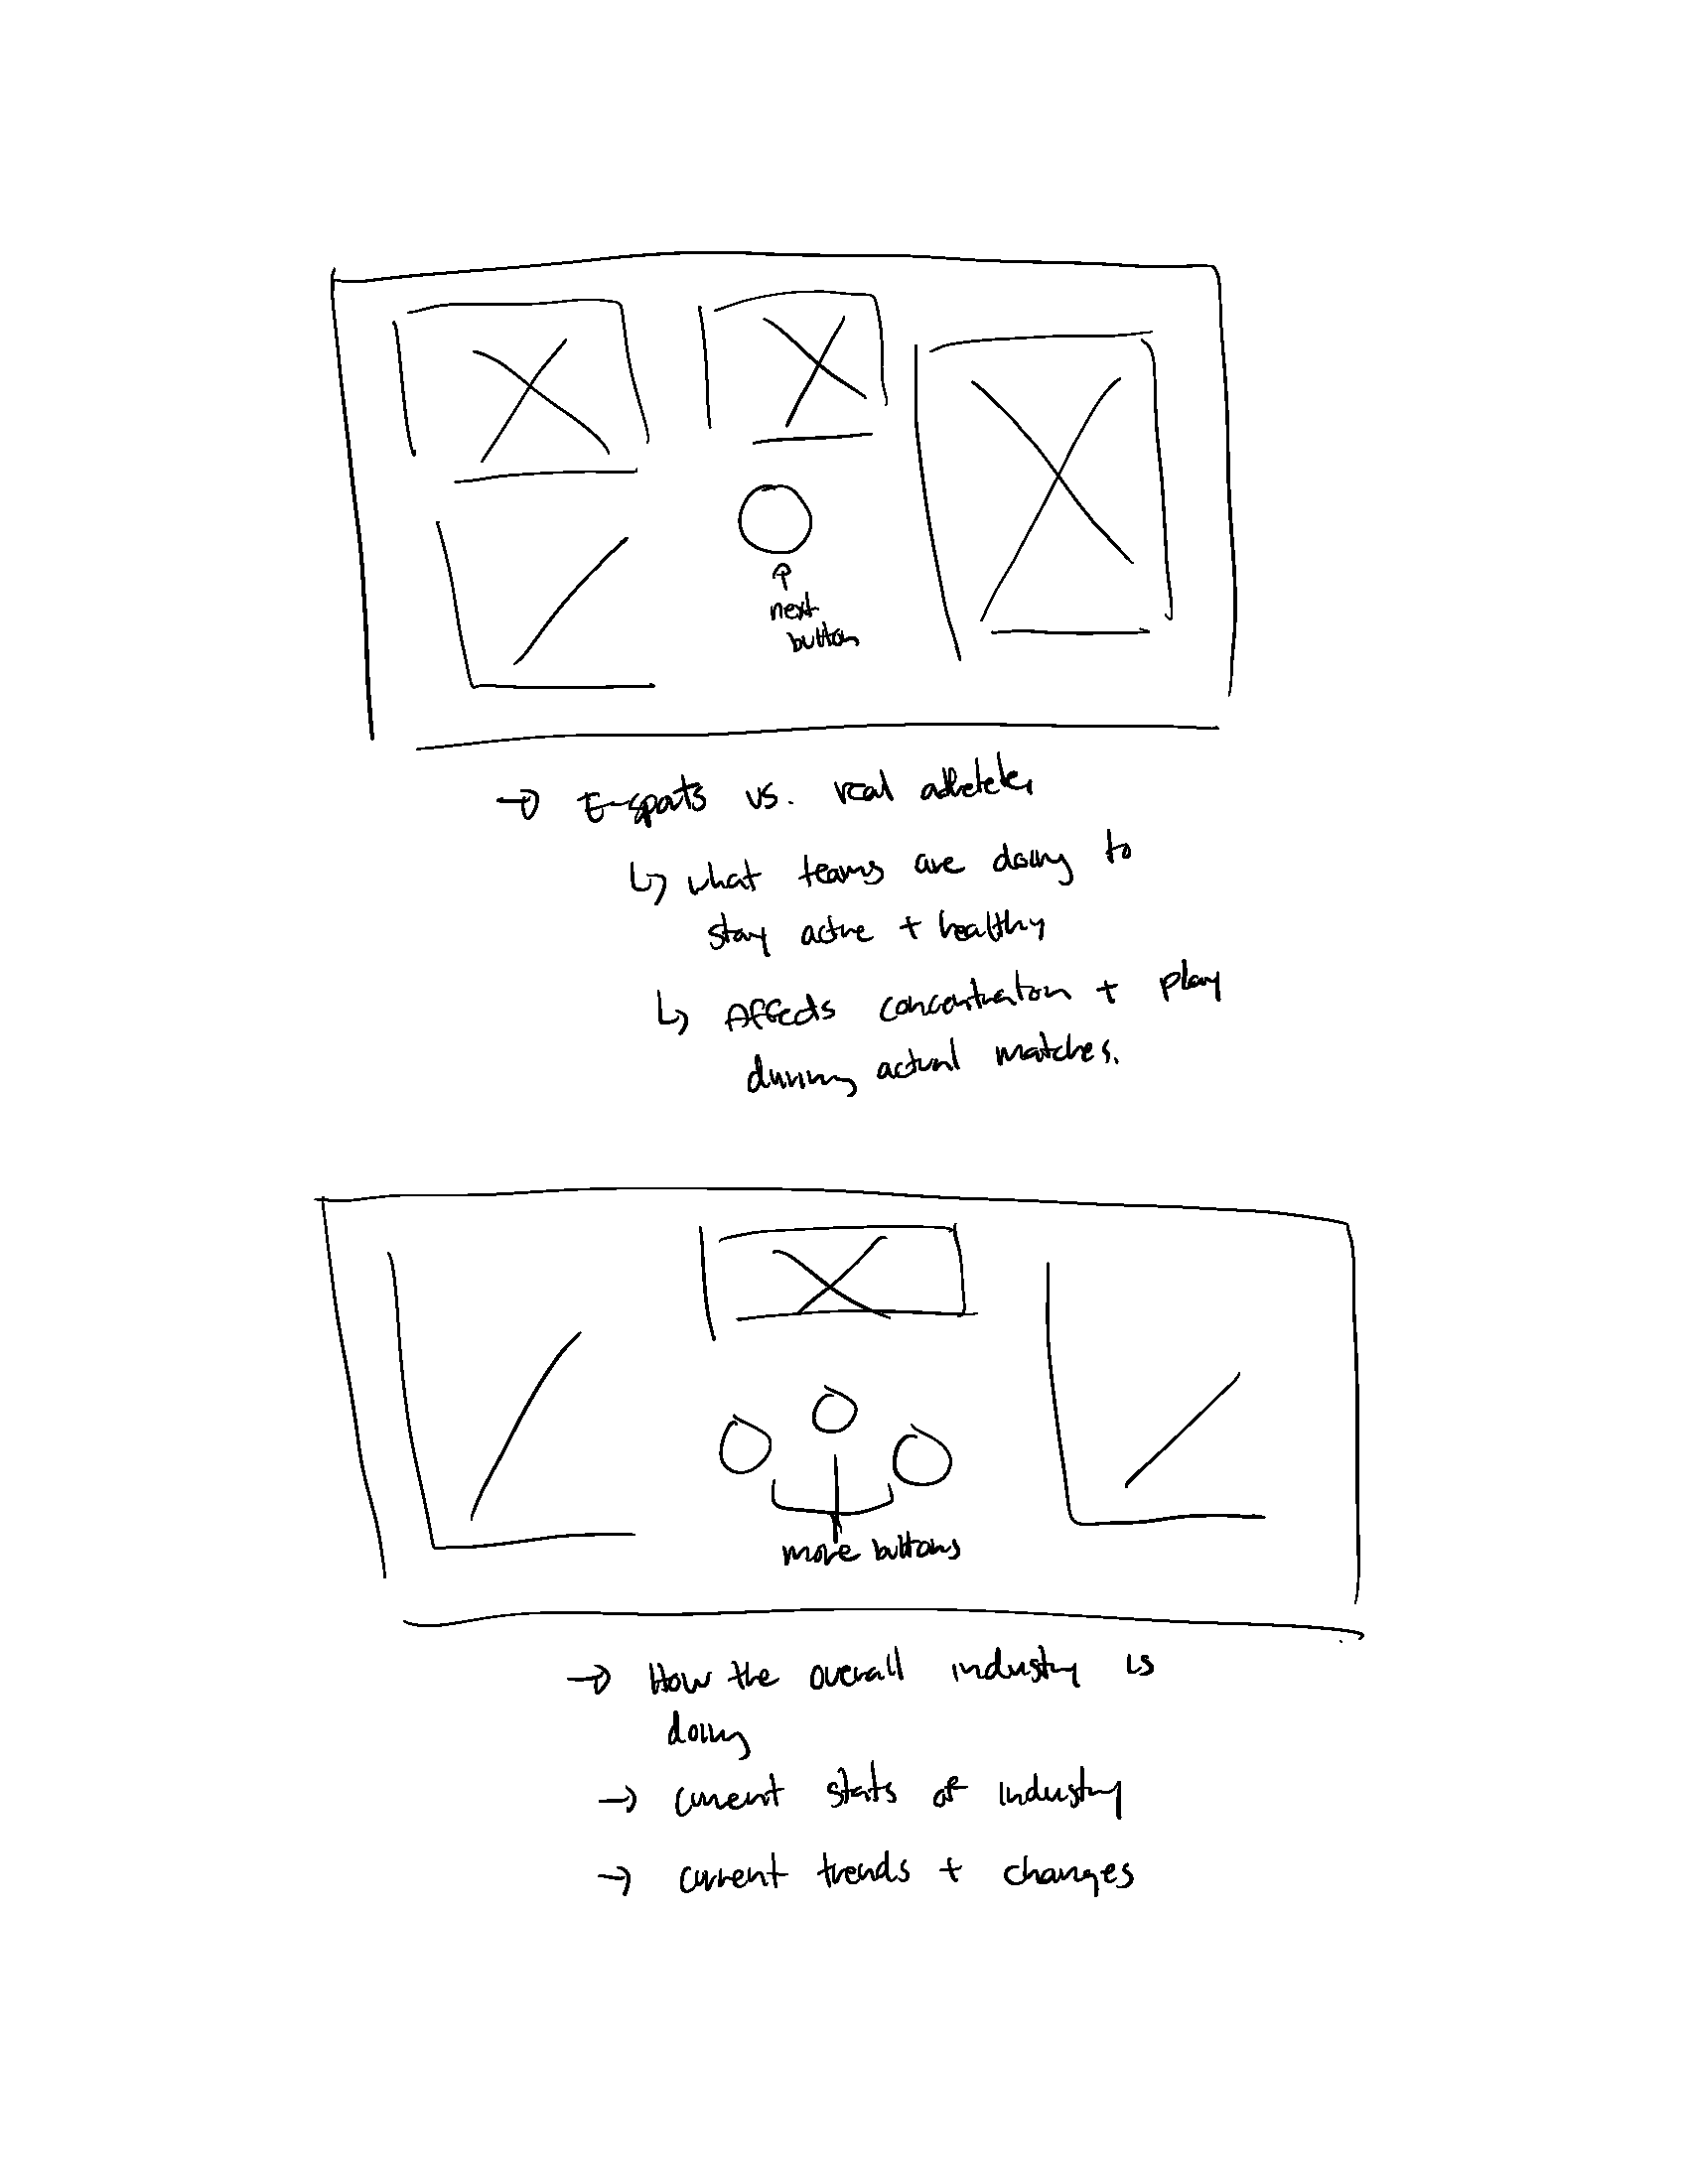 next
button
→ E-sports vs. real atheletes
↳ what teams are doing to
stay active + healthy
↳ Affects concentration + play
during actual matches.
more buttons
→ How the overall industry is
doing
→ current stats of industry
→ current trends + changes